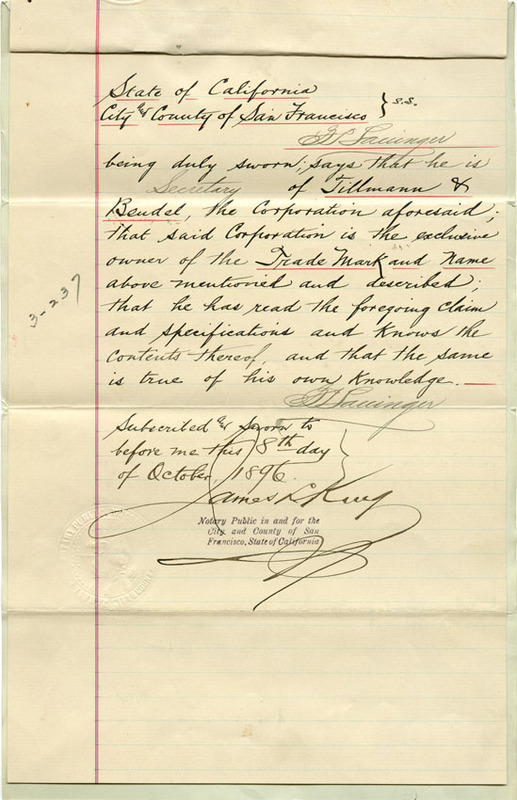 State of California
City and County of San Francisco } S.S.
being duly sworn; says that he is
Secretary of Tillmann &
Bendel, the Corporation aforesaid;
that said Corporation is the exclusive
owner of the Trade Mark and Name
above mentioned and described;
that he has read the foregoing Claim
and specifications and knows the
Contents thereof, and that the same
is true of his own Knowledge. —
3-237
Subscribed and Sworn to
before me this 8th day
of October, 1896.
James L. King
Notary Public in and for the
City and County of San
Francisco, State of California